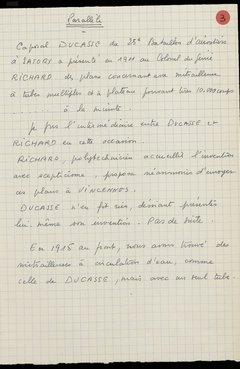 3
Parallèle
Caporal DUCASSE du 25e Bataillon d'aérostiers
à SATORY a présenté en 1911 au Colonel du génie
RICHARD des plans concernant une mitrailleuse
à tubes multiples et à plateau pouvant tirer 10.000 coups
à la minute.
Je fus l'intermédiaire entre DUCASSE et
RICHARD en cette occasion.
RICHARD, polytechnicien accueillit l'invention
avec scepticisme, proposa néanmoins d'envoyer
ces plans à VINCENNES.
DUCASSE n'en fit rien, désirant présenter
lui même son invention. Pas de suite.
En 1915 au front, nous avons trouvé des
mitrailleuses à circulation d'eau, comme
celle de DUCASSE, mais avec un seul tube.